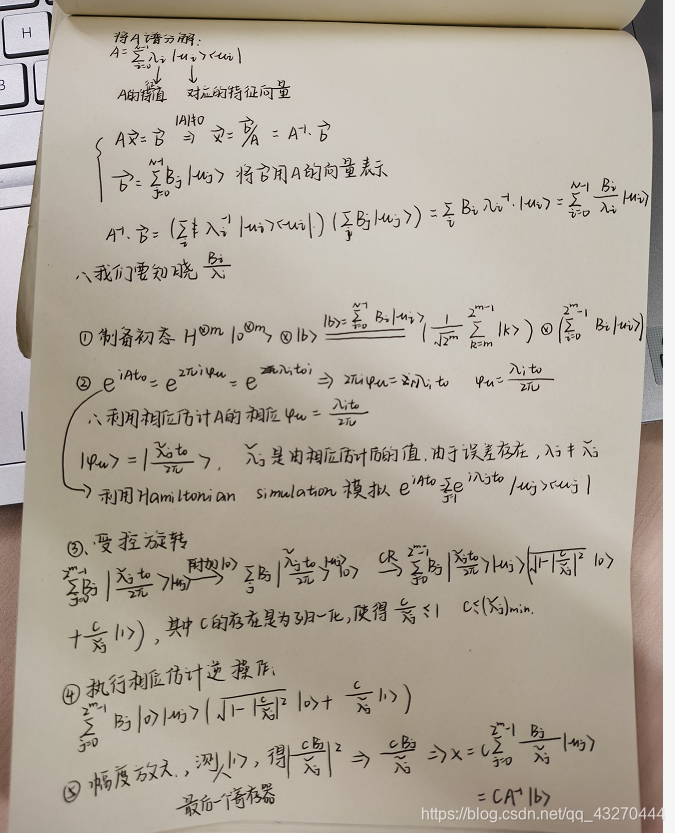 将A谱分解:
A = \sum_{i=0}^{N-1} λ_i |u_i><u_i|
A的特征值 对应的特征向量
A\vec{x} = \vec{b} \overset{|A|≠0}{⇒} \vec{x} = \vec{b}/A = A^{-1}·\vec{b}
\vec{b} = \sum_{j=0}^{N-1} B_j |u_j> 将\vec{b}用A的向量表示
A^{-1}·\vec{b} = (\sum_i λ_i^{-1} |u_i><u_i|·)(\sum_j B_j |u_j>) = \sum_i B_i λ_i^{-1}·|u_i> = \sum_{i=0}^{N-1} \frac{B_i}{λ_i} |u_i>
∴我们要知晓 \frac{B_i}{λ_i}
① 制备初态 H^{⊗m} |0^{⊗m}> ⊗ |b> \underline{\underline{|b> = \sum_{i=0}^{N-1} B_i |u_i>}} (\frac{1}{\sqrt{2^m}} \sum_{k=m}^{2^m-1} |k>) ⊗ (\sum_{i=0}^{2^m-1} B_i |u_i>)
② e^{iAt_0} = e^{2πiφ_u} = e^{λ_i t_0 i} ⇒ 2πiφ_u = iλ_i t_0 φ_u = \frac{λ_i t_0}{2π}
∴利用相位估计A的相位 φ_u = \frac{λ_i t_0}{2π}
|φ_u> = |\frac{\check{λ}_j t_0}{2π}>, \check{λ}_j 是由相位估计的值, 由于误差存在, λ_j ≠ \check{λ}_j
利用Hamiltonian simulation 模拟 e^{iAt_0} = \sum_{j=1} e^{iλ_j t_0} |u_j><u_j|
③、受控旋转
\sum_{j=0}^{2^m-1} B_j |\frac{\check{λ}_j t_0}{2π}>|u_j> \xrightarrow{附加|0>} \sum_j B_j |\frac{\check{λ}_j t_0}{2π}>|u_j>|0> \xrightarrow{CR} \sum_{j=0}^{2^m-1} B_j |\frac{\check{λ}_j t_0}{2π}>|u_j>(\sqrt{1-|\frac{c}{\check{λ}_j}|^2} |0>
+ \frac{c}{\check{λ}_j} |1>), 其中C的存在是为了归一化, 使得 \frac{c}{\check{λ}_j} ≤ 1 C ≤ (\check{λ}_j)min.
④ 执行相位估计逆操作.
\sum_{j=0}^{2^m-1} B_j |0>|u_j>(\sqrt{1-|\frac{c}{\check{λ}_j}|^2} |0> + \frac{c}{\check{λ}_j} |1>)
⑤ 幅度放大., 测|1>, 得|\frac{cB_j}{\check{λ}_j}|^2 ⇒ \frac{cB_j}{\check{λ}_j} ⇒ x = C\sum_{j=0}^{2^m-1} \frac{B_j}{\check{λ}_j} |u_j>
最后一个寄存器 = CA^{-1}|b>
https://blog.csdn.net/qq_43270444